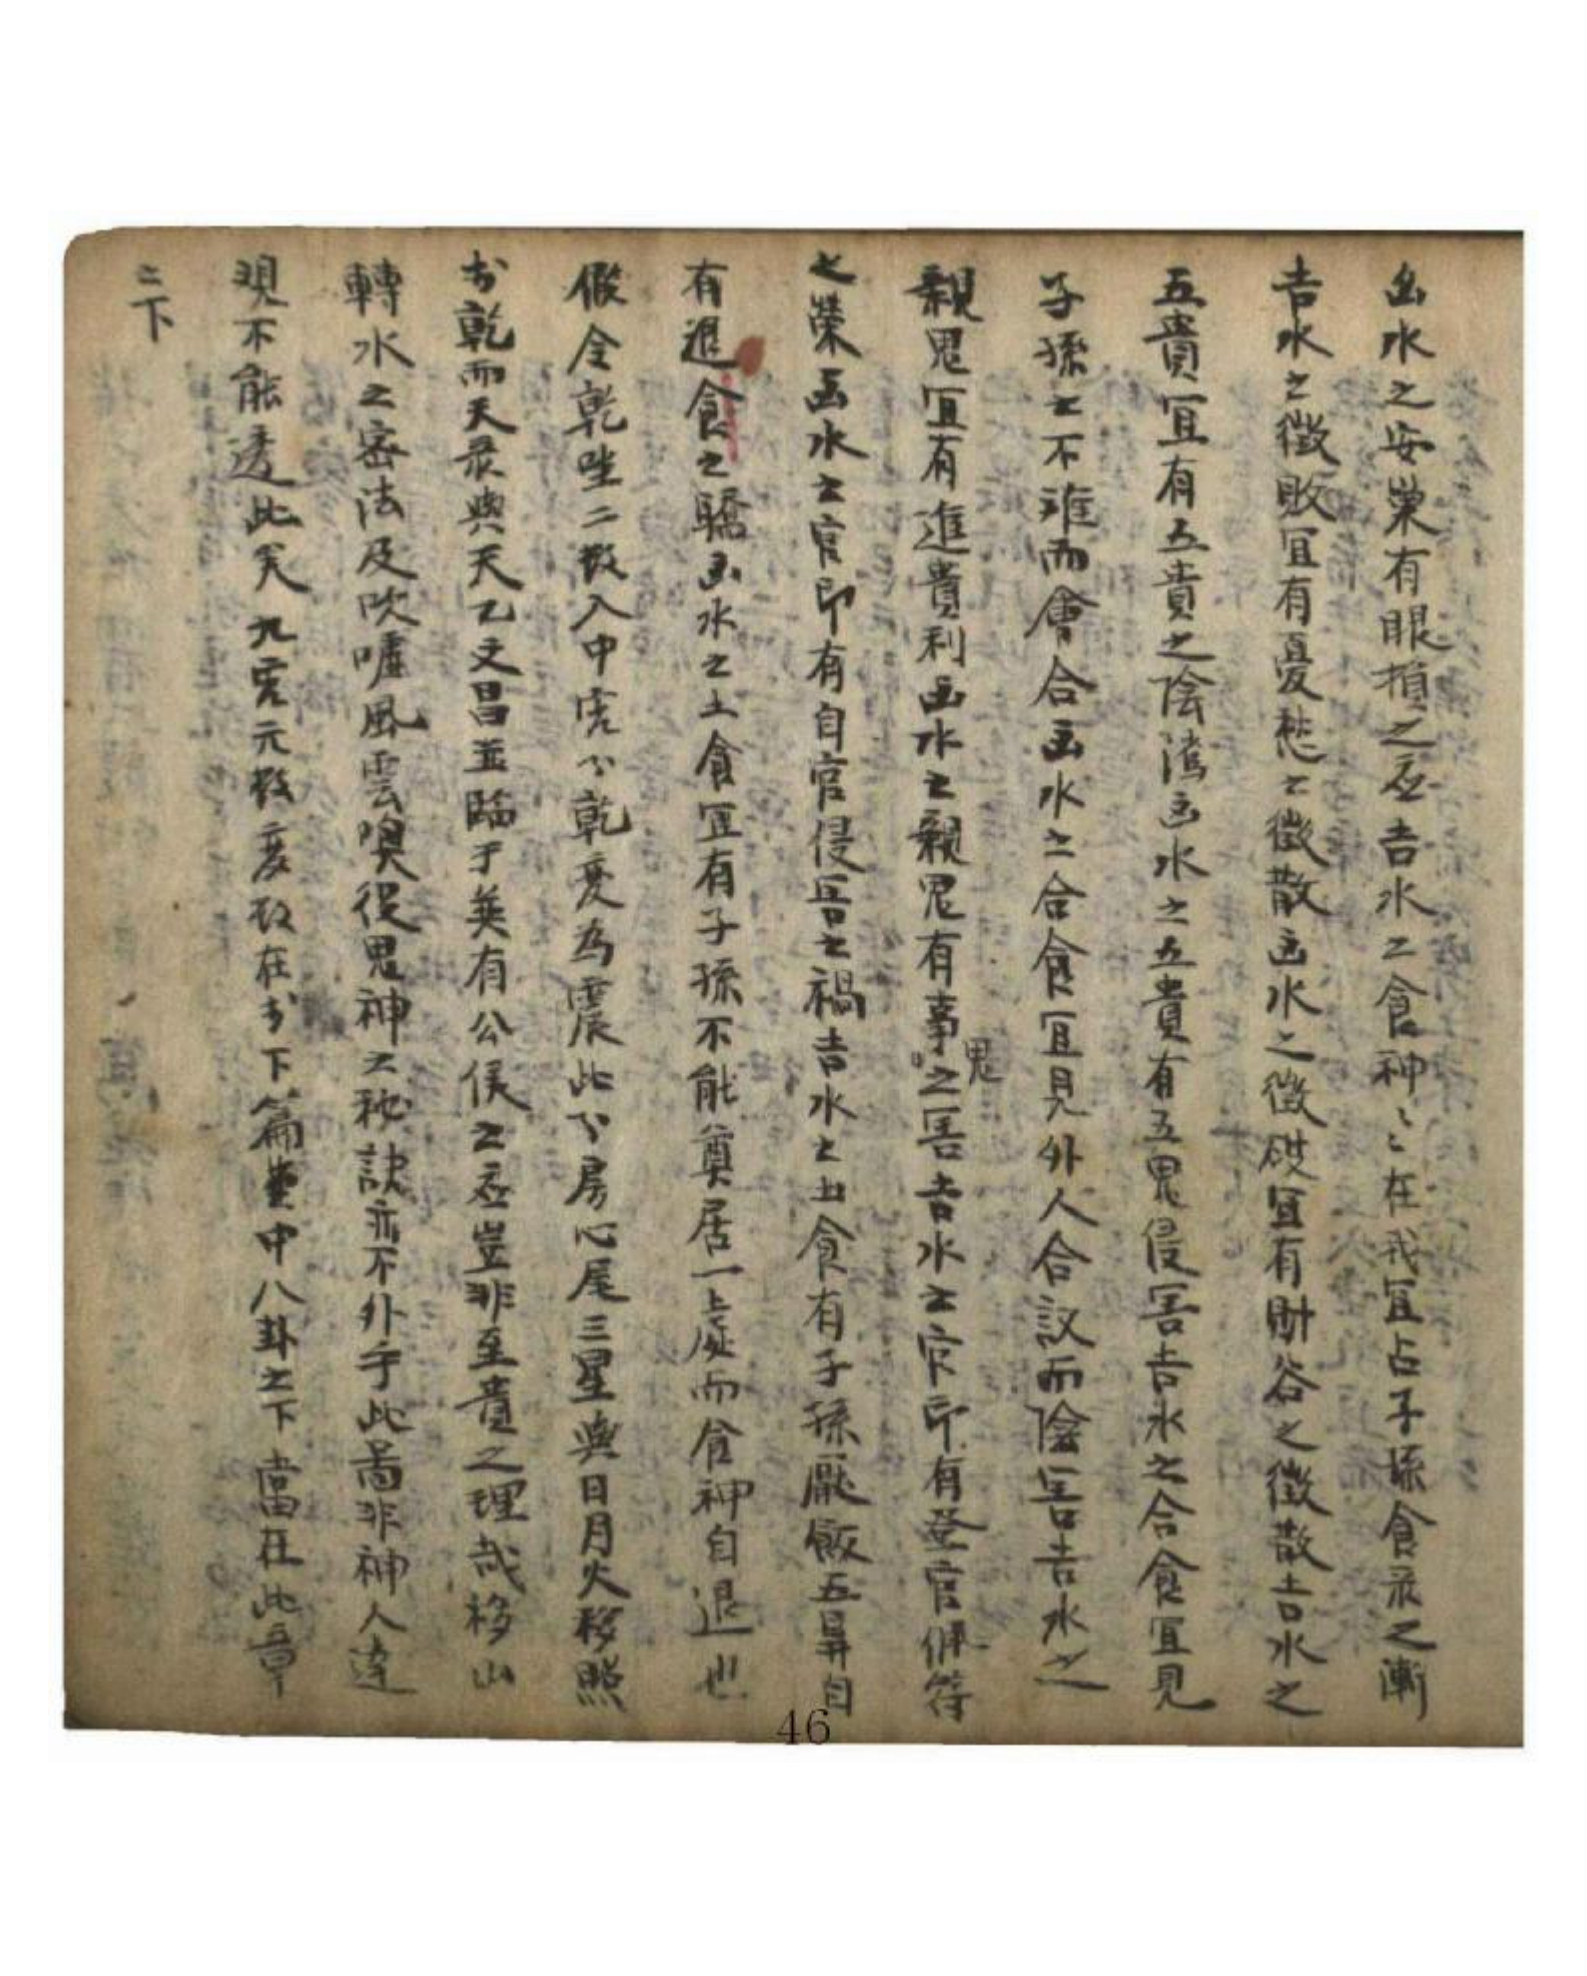 凶水之安榮有眼損之应吉水之食神〻在我冝占子孫食禄之漸
吉水之徵敗冝有憂愁之徵散凶水之徵冝有財谷之徵散吉水之
五貴冝有五貴之陰凶水之五貴有五鬼侵害吉水之合食冝見
子孫之不难而會合凶水之合食冝見外人合議而陰害吉水之
親鬼冝有進貴利凶水之親鬼有事鬼之害吉水之官印有登官佩符
之榮凶水之官印有自官侵害之禍吉水之土食有子孫厭飯五鼻自
有退食之驕凶水之土食冝有子孫不能奠居一處而食神自退也
假令乾坐二数入中宮乾变為震此房心尾三星與日月火移照
於乾而天禄與天乙文昌並臨于美有公侯之应豈非至貴之理哉移山
轉水之密法及吹嘘風雲喚役鬼神之秘訣亦不外乎此啚非神人達
現不能透此矣九宮元数变数在於下篇中八卦之下當在此章
之下
46